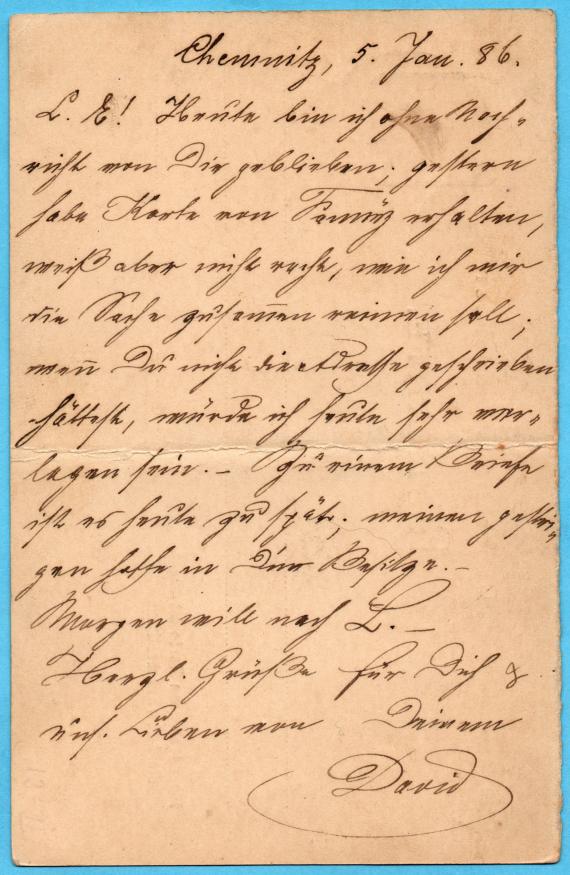 Chemnitz, 5. Jan. 86.
L. E! Heute bin ich ohne Nach-
richt von Dir geblieben; gestern
habe Karte von Fanny erhalten,
weiß aber nicht recht, wie ich mir
die Sache zusam̅en reimen soll;
wen̅ Du nicht die Adresse geschrieben
hättest, würde ich heute sehr ver-
legen sein. – Zu einem Briefe
ist es heute zu spät; meinen gestri-
gen hoffe in Dein Besitze. –
Morgen will nach L. –
Herzl. Grüße für Dich &
uns. Lieben von Deinem
David